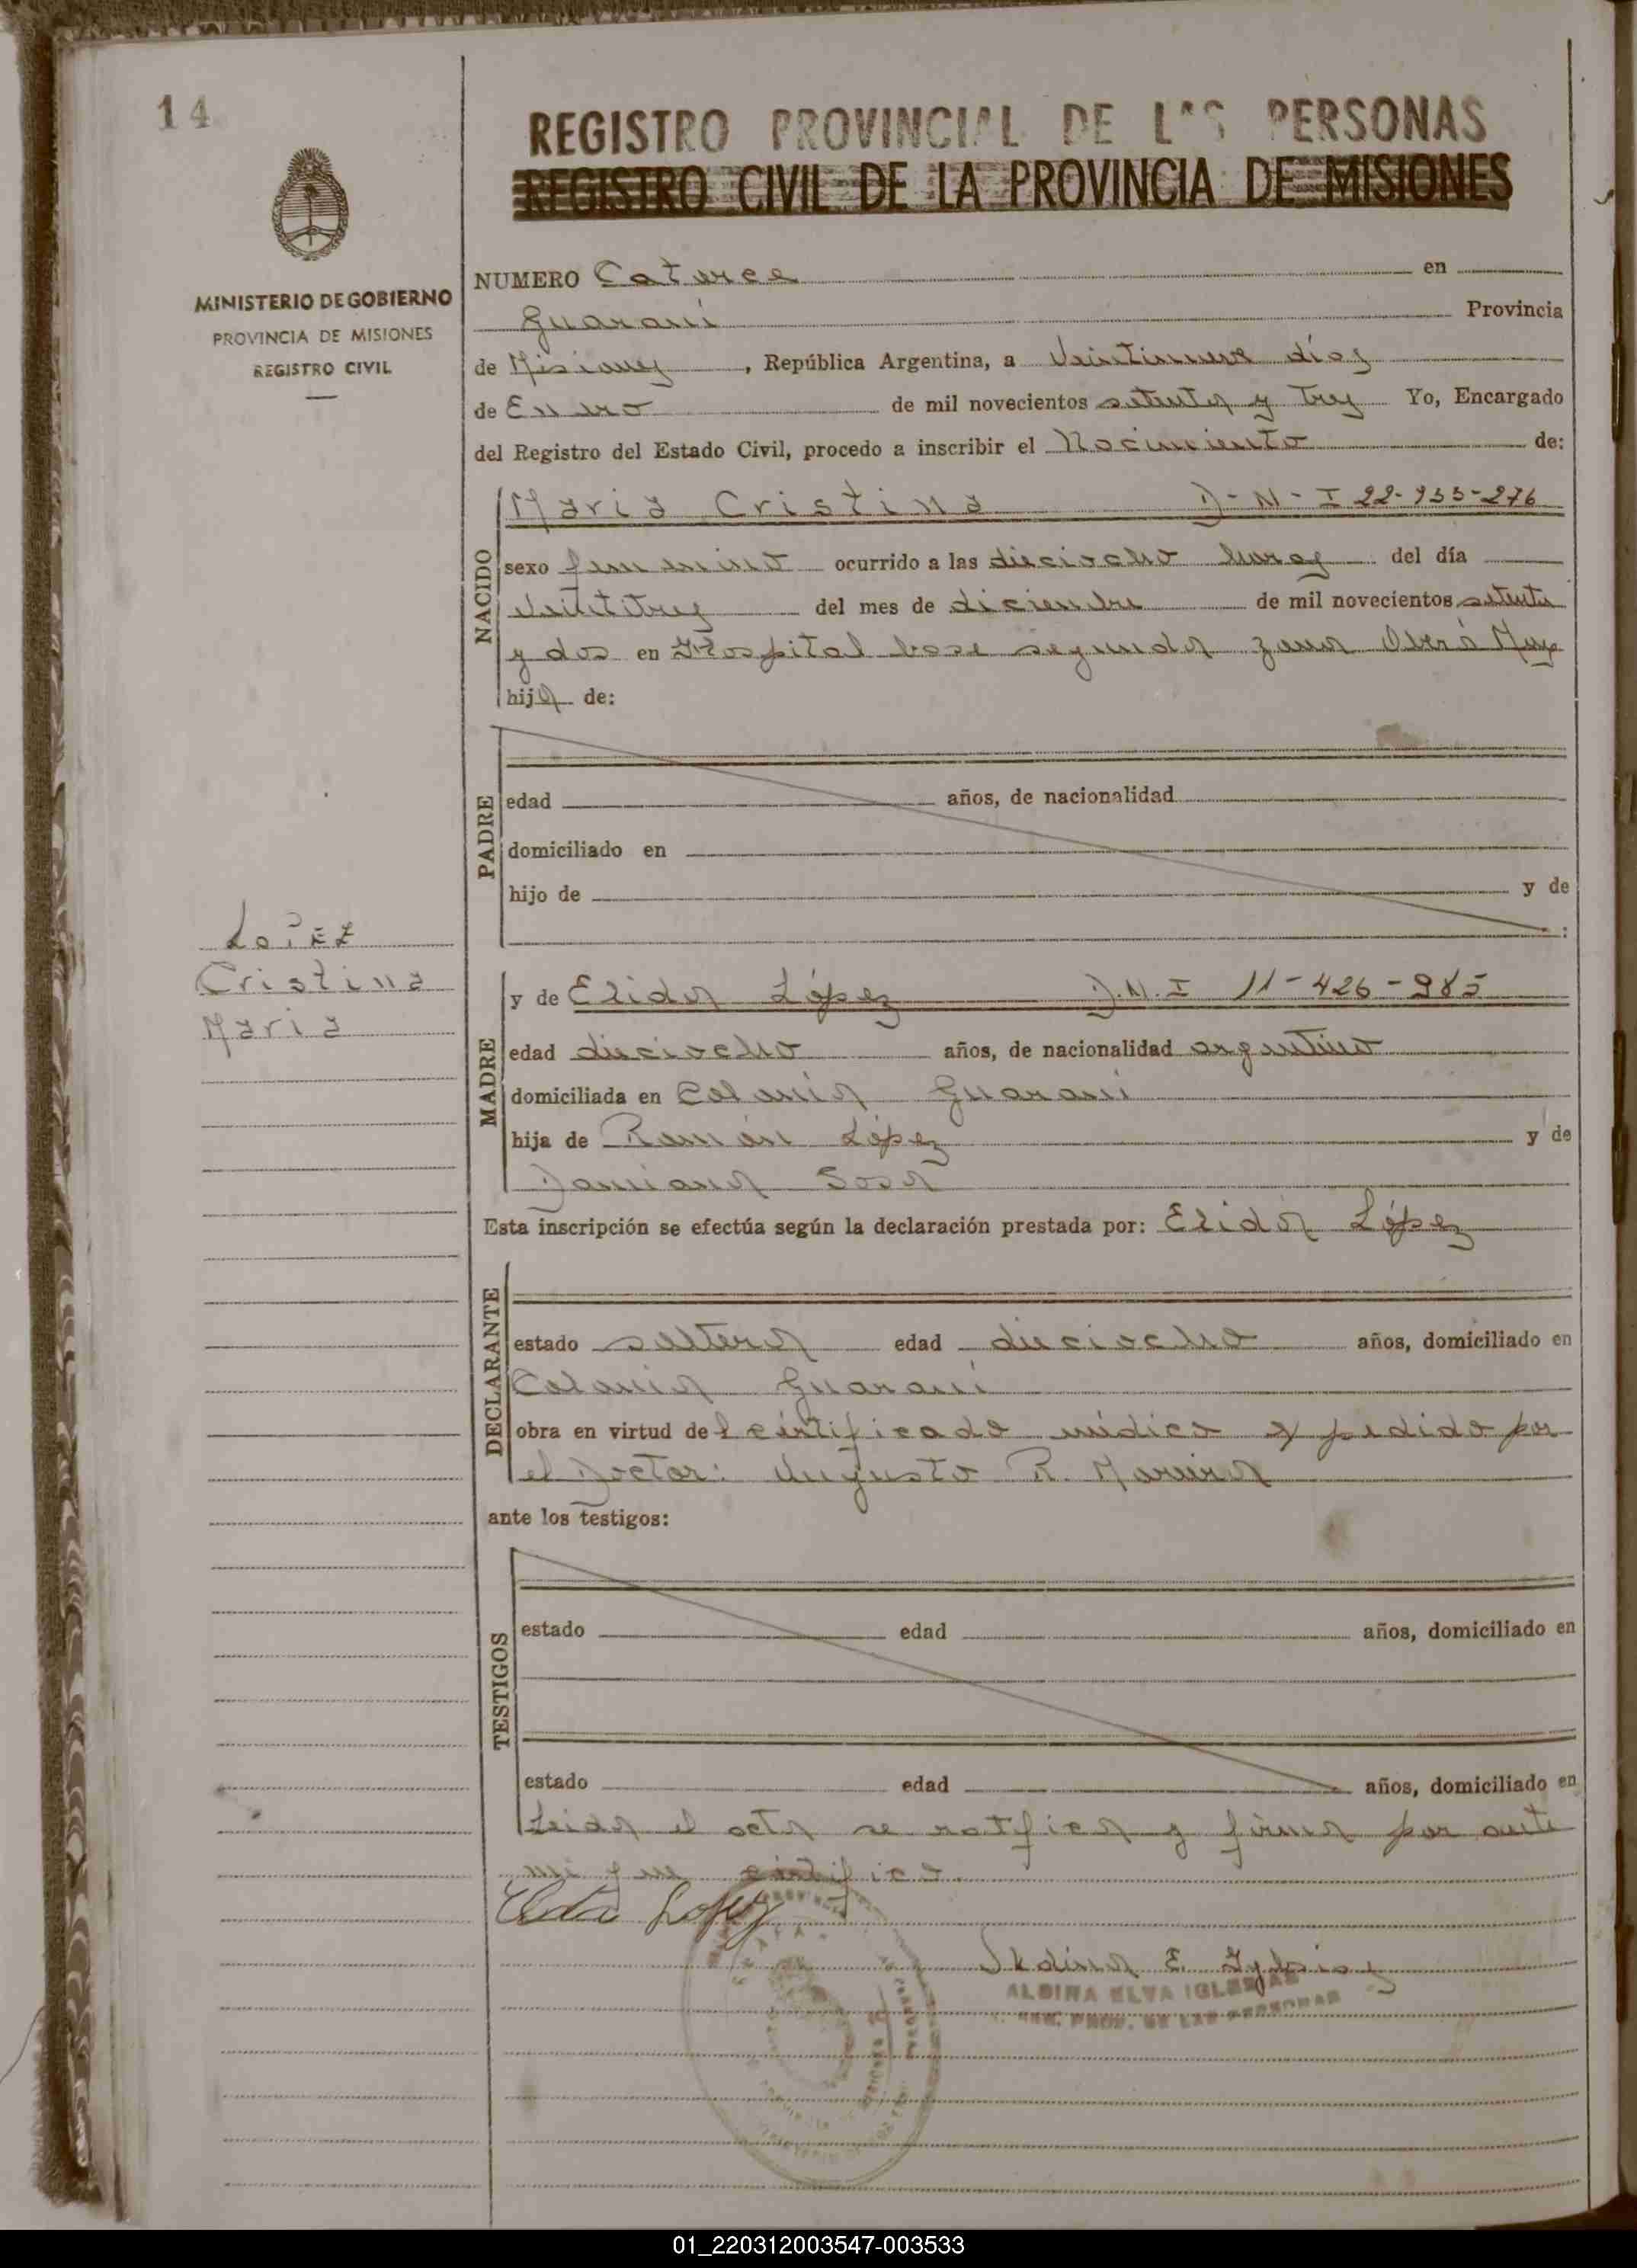 14
REGISTRO PROVINCIAL DE LAS PERSONAS
REGISTRO CIVIL DE LA PROVINCIA DE MISIONES
MINISTERIO DE GOBIERNO
PROVINCIA DE MISIONES
REGISTRO CIVIL
NUMERO Catorce en
Guaraní Provincia
de Misiones, República Argentina, a Veintinueve días
de Enero de mil novecientos setenta y tres Yo, Encargado
del Registro del Estado Civil, procedo a inscribir el Nacimiento de:
NACIDO
Maria Cristina D-N-I 22-933-276
sexo femenino ocurrido a las dieciocho horas del día
veintitres del mes de diciembre de mil novecientos setenta
y dos en Hospital base segunda zona Oberá Mnes
hija de:
PADRE
edad años, de nacionalidad
domiciliado en
hijo de y de
:
LoPEZ
Cristina
Maria
MADRE
y de Elida López D.N.I 11-426-985
edad dieciocho años, de nacionalidad argentina
domiciliada en Colonia Guaraní
hija de Ramón López y de
Damiana Sosa
Esta inscripción se efectúa según la declaración prestada por: Elida López
DECLARANTE
estado soltera edad dieciocho años, domiciliado en
Colonia Guaraní
obra en virtud del certificado médico expedido por
el Doctor: Augusto R.
ante los testigos:
TESTIGOS
estado edad años, domiciliado en
estado edad años, domiciliado en
Leida el acta se ratifica y firma por ante
mi que certifico.
Elida Lopez
Albina E. Iglesias
ALBINA ELVA IGLESIAS
REG. PROV. DE LAS PERSONAS
01_220312003547-003533